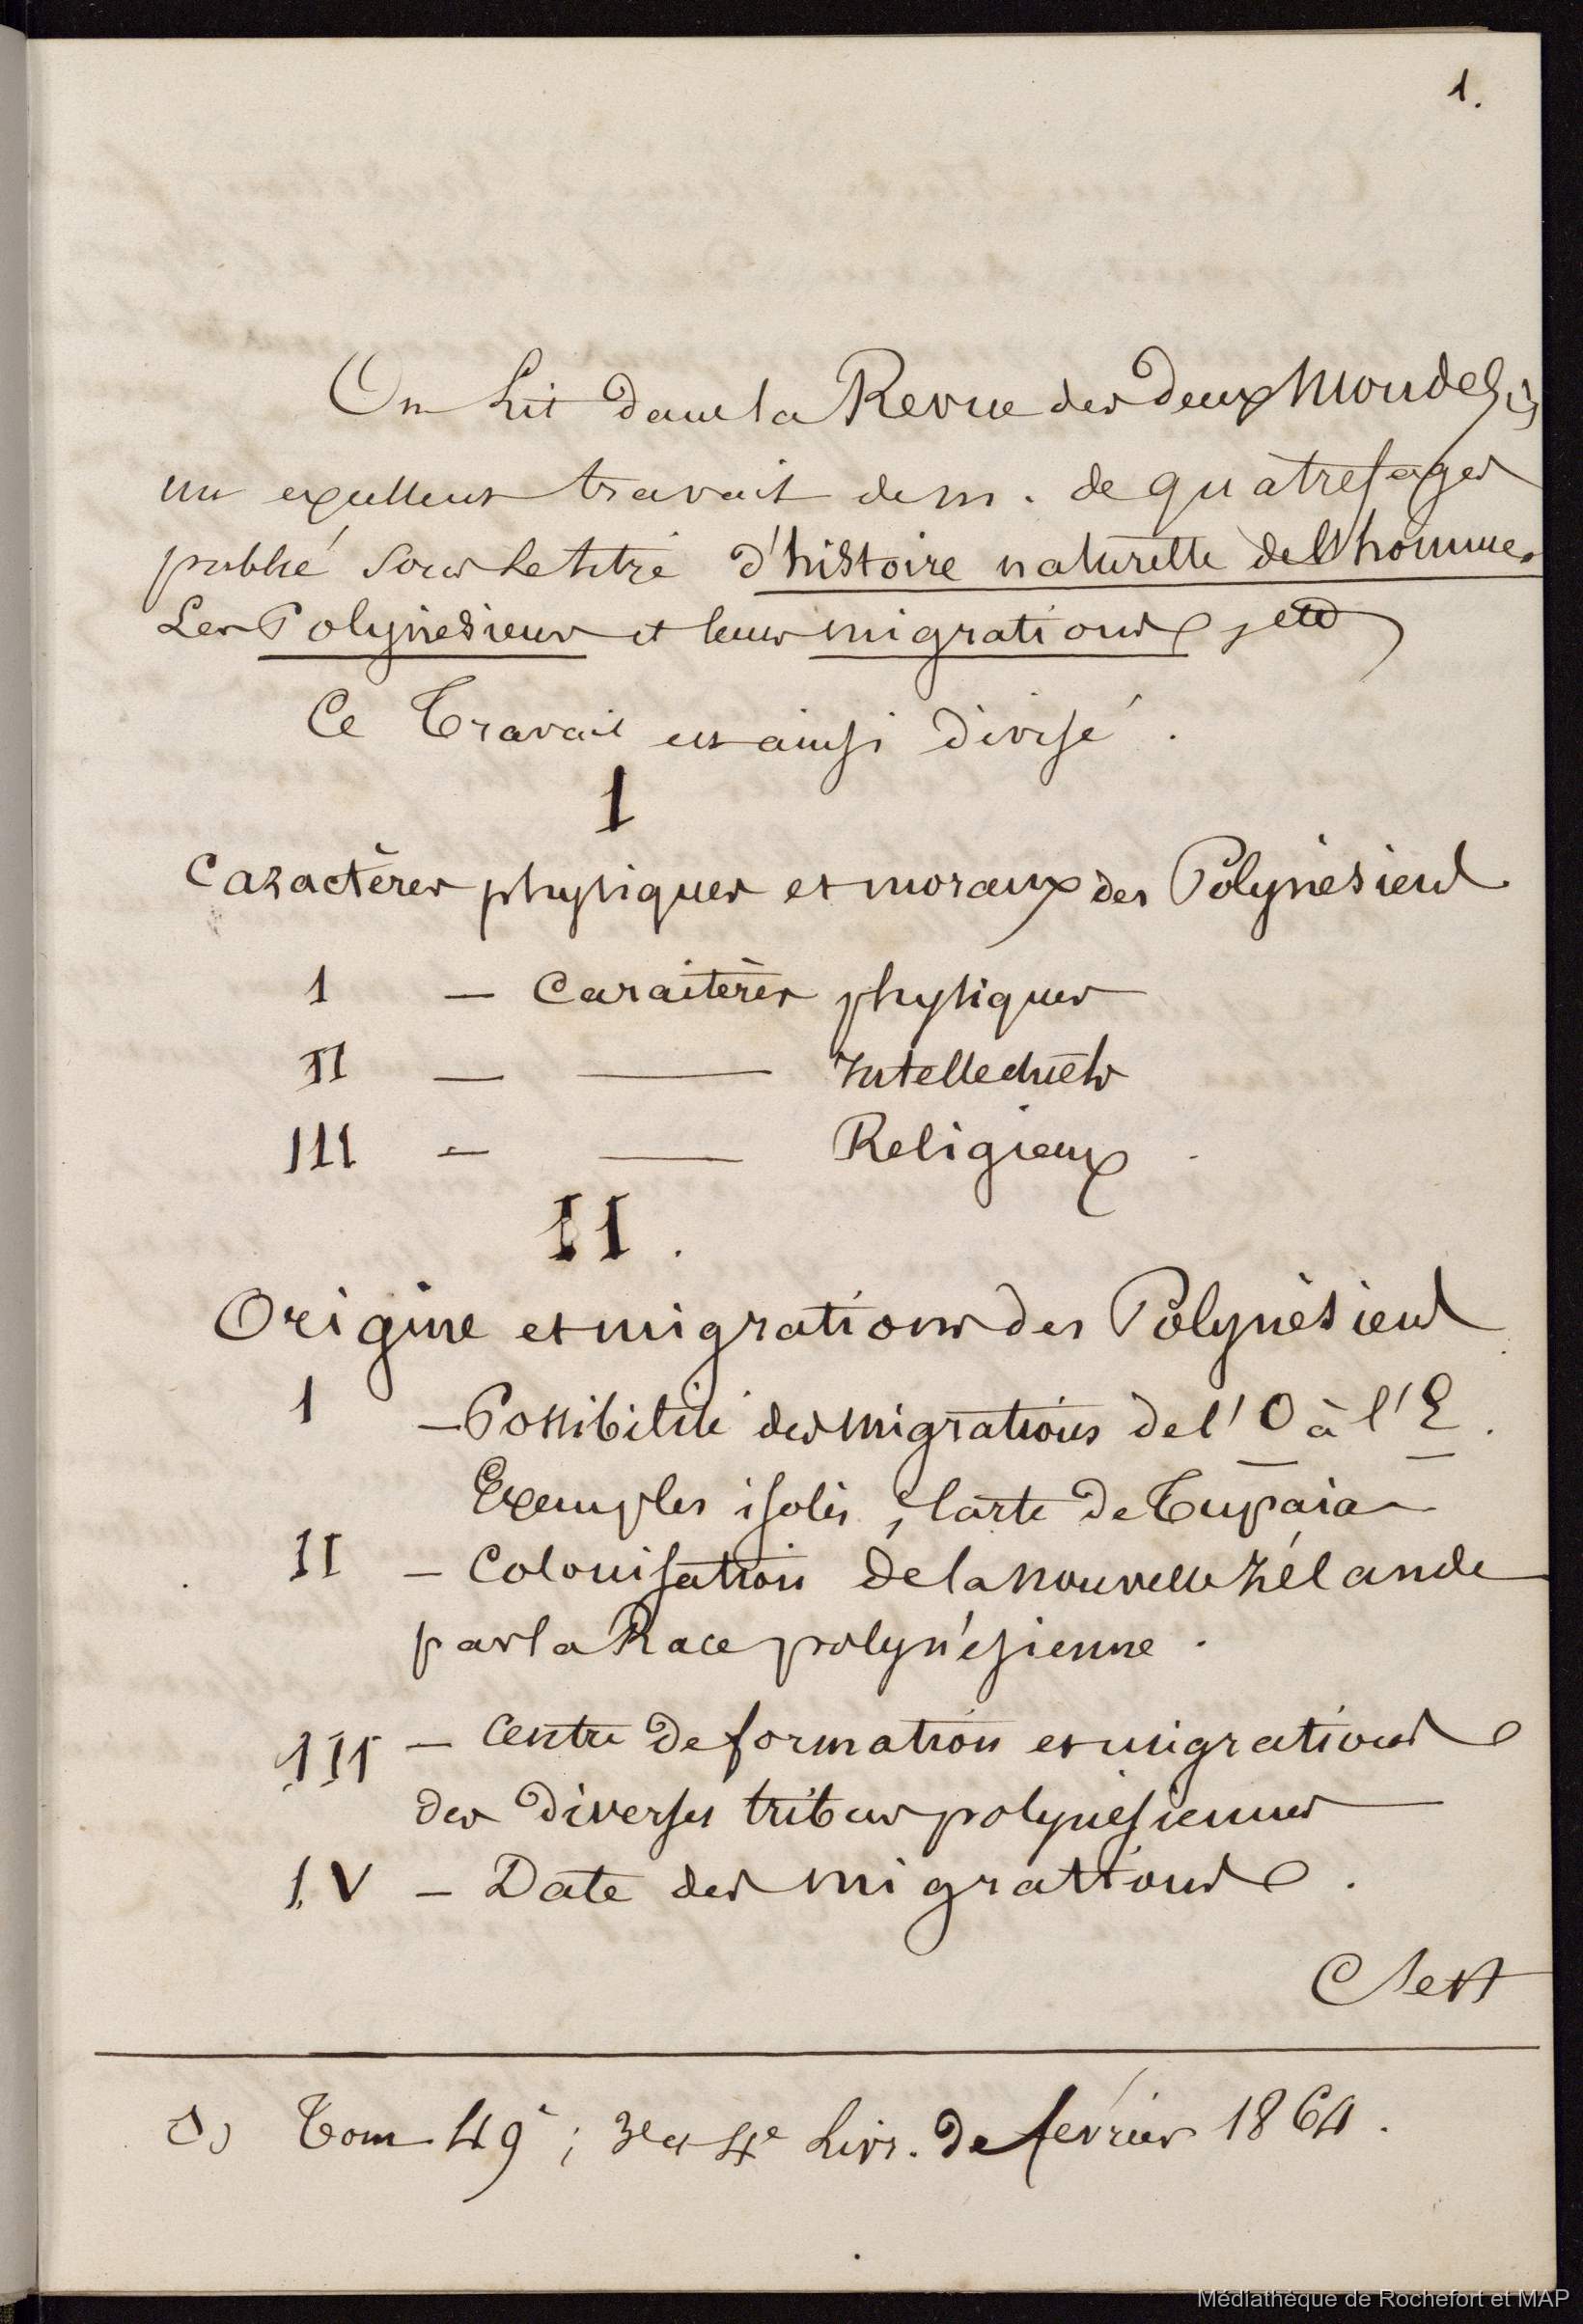 1.
On Lit dans la Revue des deux Mondes (1)
un excellent travail de m. de quatrefages
publié sous le titre d'histoire naturelle de l'homme.
Les Polynésiens et leurs migrations, etc
Ce Travail est ainsi divisé.
I
Caractères physiques et moraux des Polynésiens
I — Caractères physiques
II — — Intellectuels
III — — Religieux.
II.
Origine et migrations des Polynésiens
I — Possibilité des migrations de l'O à l'E.
Exemples isolés, Carte de Tupaia
II — Colonisation de la nouvelle zélande
par la Race polynésienne.
III — Centre de formation et migrations
des diverses tribus polynésiennes
IV — Date des migrations.
C'est
(1) Tom 49e; 3e et 4e Livr. de février 1864.
Médiathèque de Rochefort et MAP